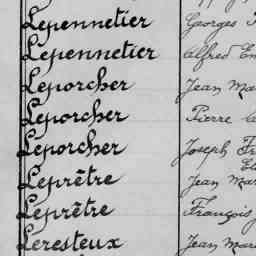 Lepennetier Georges
Lepennetier Alfred
Leporcher Jean
Leporcher Pierre
Leporcher Joseph
Leprêtre Jean
Leprêtre François
Leresteux Jean